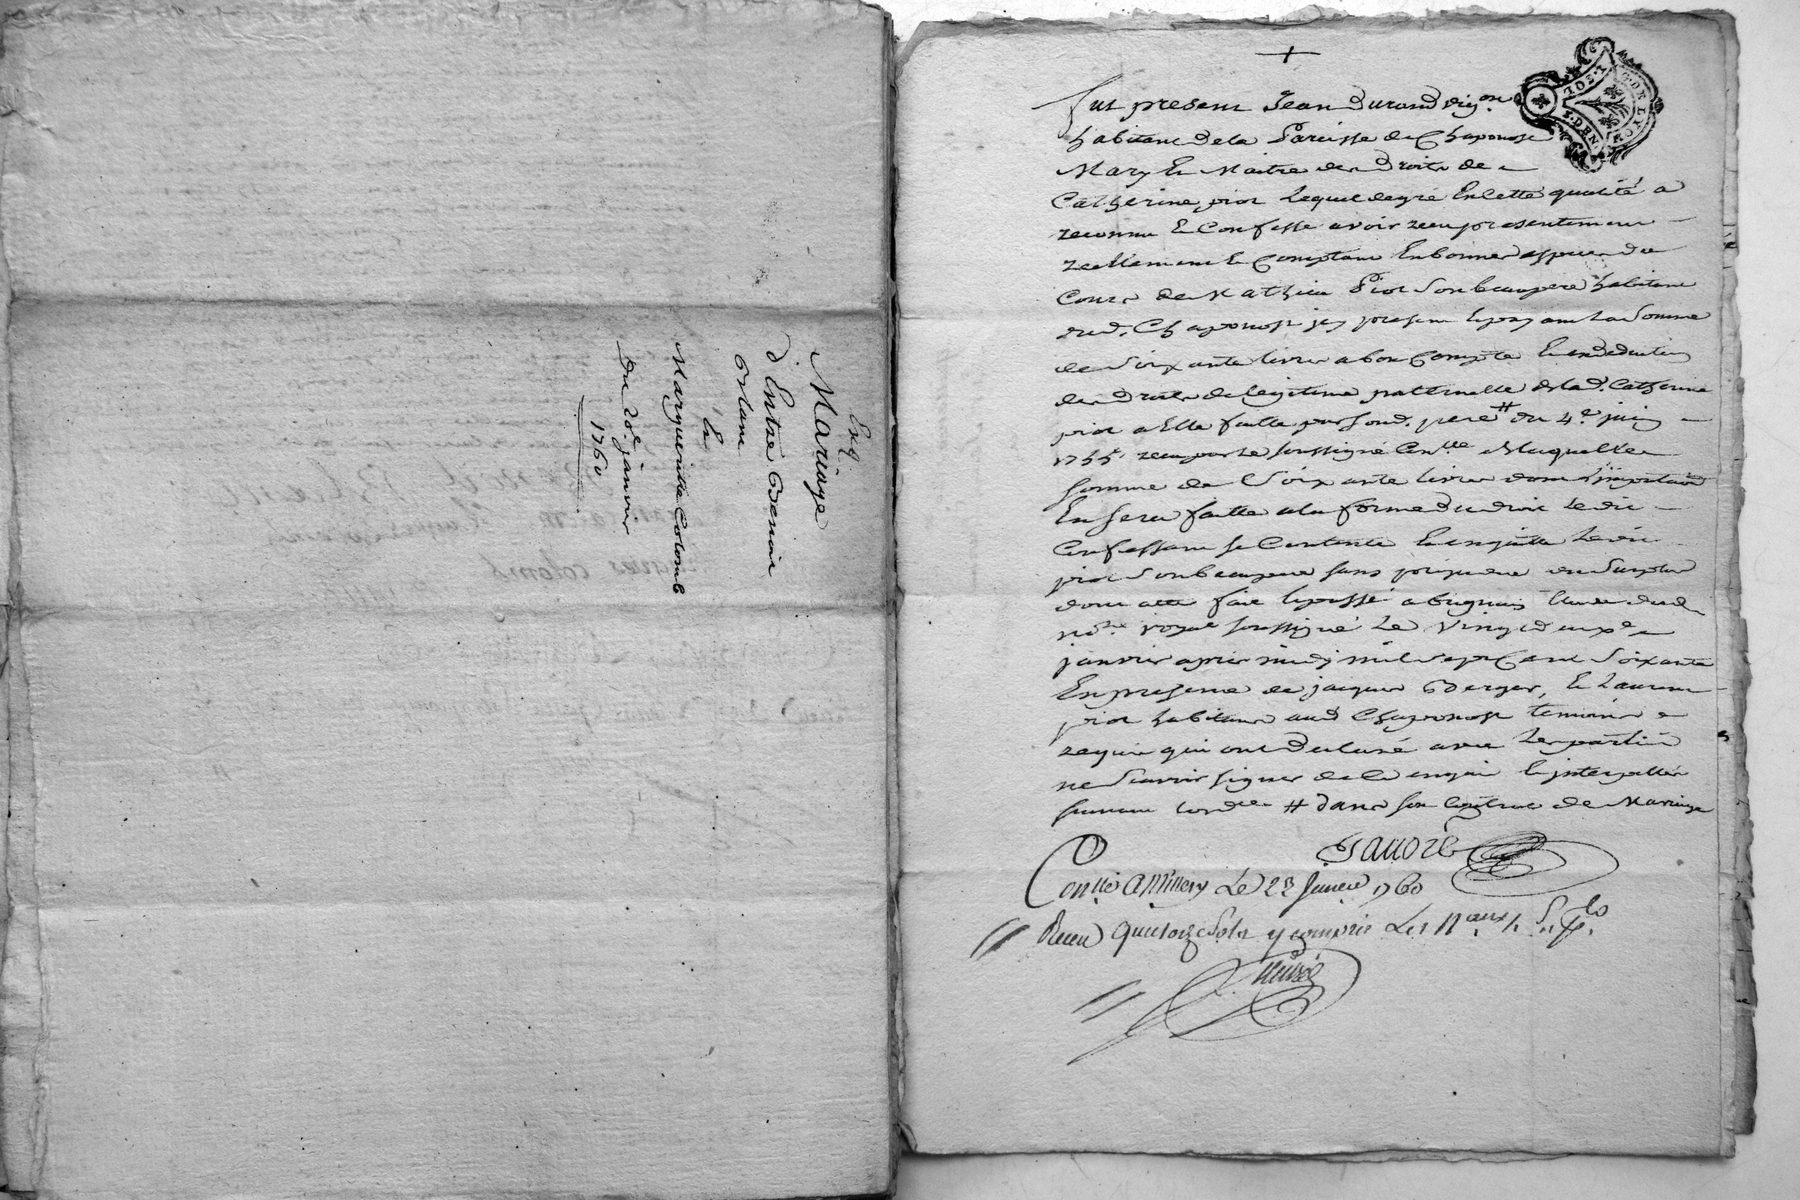 Exq.
Mariage
d'Entre Benoist
Blanc
Et
Marguerite Colomb
Du 20e. janvier
1760
+
Fut present Jean Durand vign.on
habitant dela Paroisse de Chaponost
Mary Et Maitre des Droits de
Catherine piot Lequel degré En cette qualité a
reconnu Et Confessé avoir receu presentement
reellement Et Comptant En bonnes especes de
Cours de Mathieu Piot Son beaupere habitant
dud. Chaponost jcy present Et payant La Somme
de Soixante livres a bon Compte Et en deduction
des Droits de legitime paternelle de lad. Catherine
piot a Elle faitte par sond. pere # du 4.e juin
1755 receu par Le soussigné Con.lle Laquelle
somme de Soixante livres dont l'imputation
En sera faitte a la forme du droit Le dit
Confessant se Contente Et en quitte Led.
piot Son beaupere sans prejudice du Surplus
dont acte fait Et passé a brignais Etude dud.
no.re royal soussigné Le vingt deuxe
janvier apres midy mil Sept Cent Soixante
En presence de jacques Berger, Et Laurent
piot habitans aud Chaponost temoins
requis qui ont declaré avec Les parties
ne Scavoir signer de ce enquis Et interpellés
suivant lord.ce # dans son Contrat de Mariage
Con.llé a Millery Le 23 Janvier 1760
Receu Quatorze Sols y compris Les
2.SOLS
DEN
DE LYON